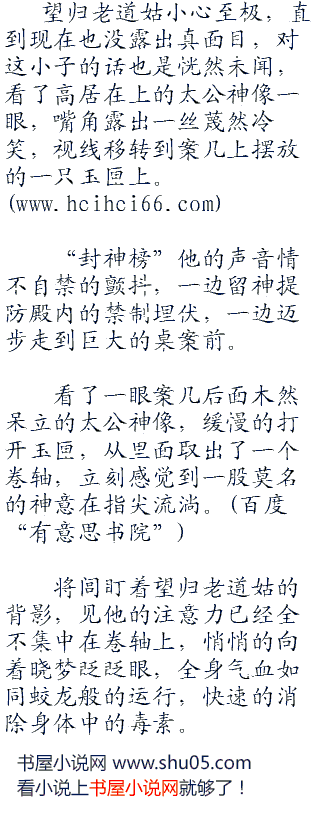 望归老道姑小心至极，直
到现在也没露出真面目，对
这小子的话也是恍然未闻，
看了高居在上的太公神像一
眼，嘴角露出一丝蔑然冷
笑，视线移转到案几上摆放
的一只玉匣上。
(www.hcihci66.com)
“封神榜”他的声音情
不自禁的颤抖，一边留神提
防殿内的禁制埋伏，一边迈
步走到巨大的桌案前。
看了一眼案几后面木然
呆立的太公神像，缓慢的打
开玉匣，从里面取出了一个
卷轴，立刻感觉到一股莫名
的神意在指尖流淌。(百度
“有意思书院”)
将闾盯着望归老道姑的
背影，见他的注意力已经全
不集中在卷轴上，悄悄的向
着晓梦眨眨眼，全身气血如
同蛟龙般的运行，快速的消
除身体中的毒素。
书屋小说网 www.shu05.com
看小说上书屋小说网就够了！